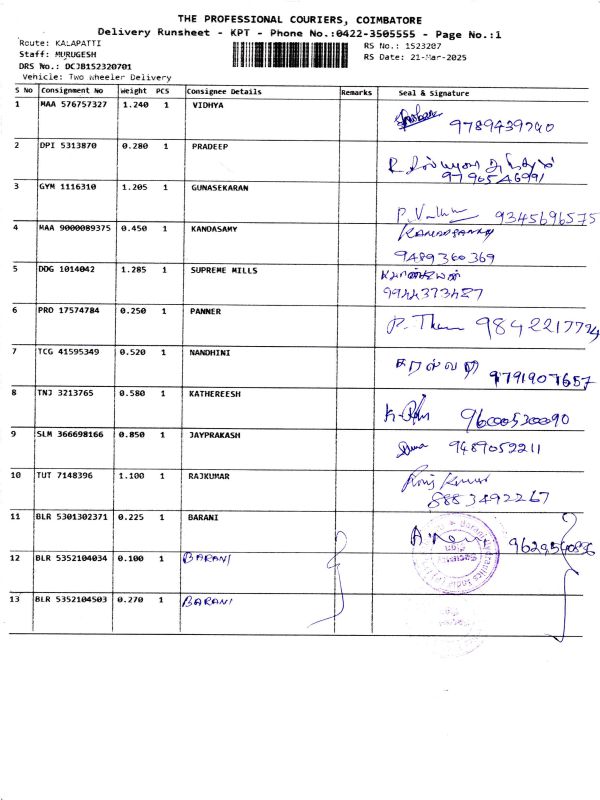 THE PROFESSIONAL COURIERS, COIMBATORE
Delivery Runsheet - KPT - Phone No.:0422-3505555 - Page No.:1
Route: KALAPATTI RS No.: 1523207
Staff: MURUGESH RS Date: 21-Mar-2025
DRS No.: DCJB152320701
Vehicle: Two Wheeler Delivery
S No Consignment No Weight PCS Consignee Details Remarks Seal & Signature
1 MAA 576757327 1.240 1 VIDHYA
9789439740
2 DPI 5313870 0.280 1 PRADEEP
R
9790546991
3 GYM 1116310 1.205 1 GUNASEKARAN
9345696575
4 MAA 9000089375 0.450 1 KANDASAMY
KANDASAMY
9489360369
5 DDG 1014042 1.285 1 SUPREME MILLS
9944373487
6 PRO 17574784 0.250 1 PANNER
9842217774
7 TCG 41595349 0.520 1 NANDHINI
9791907657
8 TNJ 3213765 0.580 1 KATHEREESH
9600530090
9 SLM 366698166 0.850 1 JAYPRAKASH
9489052211
10 TUT 7148396 1.100 1 RAJKUMAR
Kumar
8883492267
11 BLR 5301302371 0.225 1 BARANI
9629540896
12 BLR 5352104034 0.100 1 BARANI
13 BLR 5352104503 0.270 1 BARANI